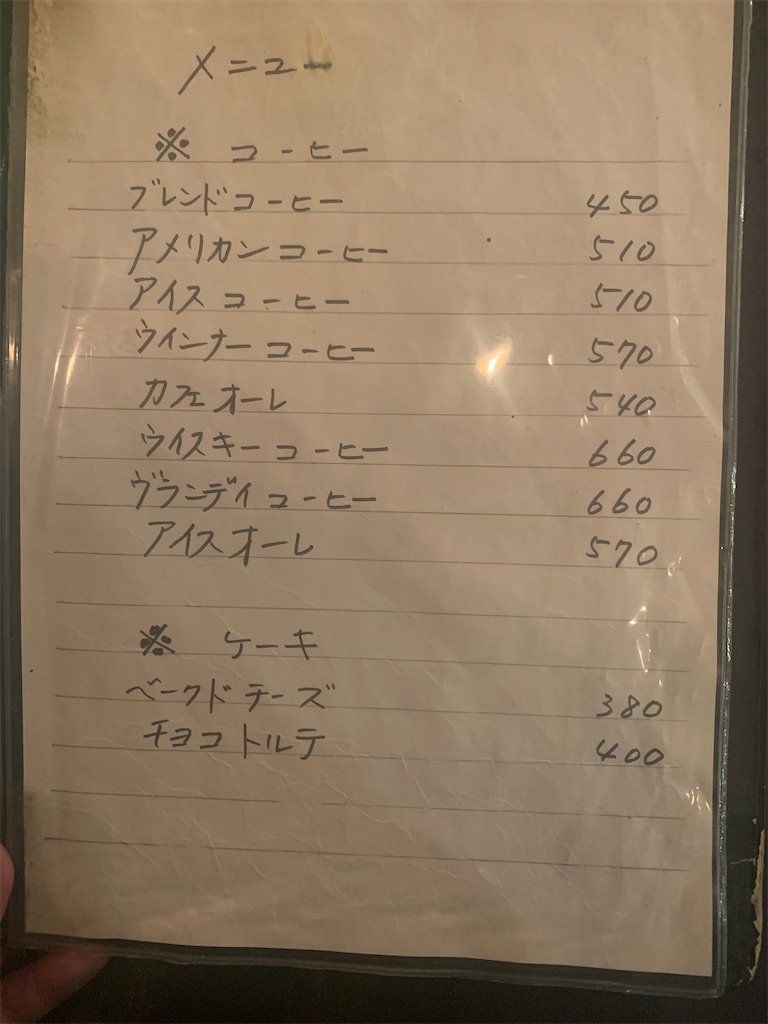 メニュー
※ コーヒー
ブレンドコーヒー 450
アメリカンコーヒー 510
アイスコーヒー 510
ウインナーコーヒー 570
カフェオーレ 540
ウイスキーコーヒー 660
ヴランデイコーヒー 660
アイスオーレ 570
※ ケーキ
ベークドチーズ 380
チョコトルテ 400